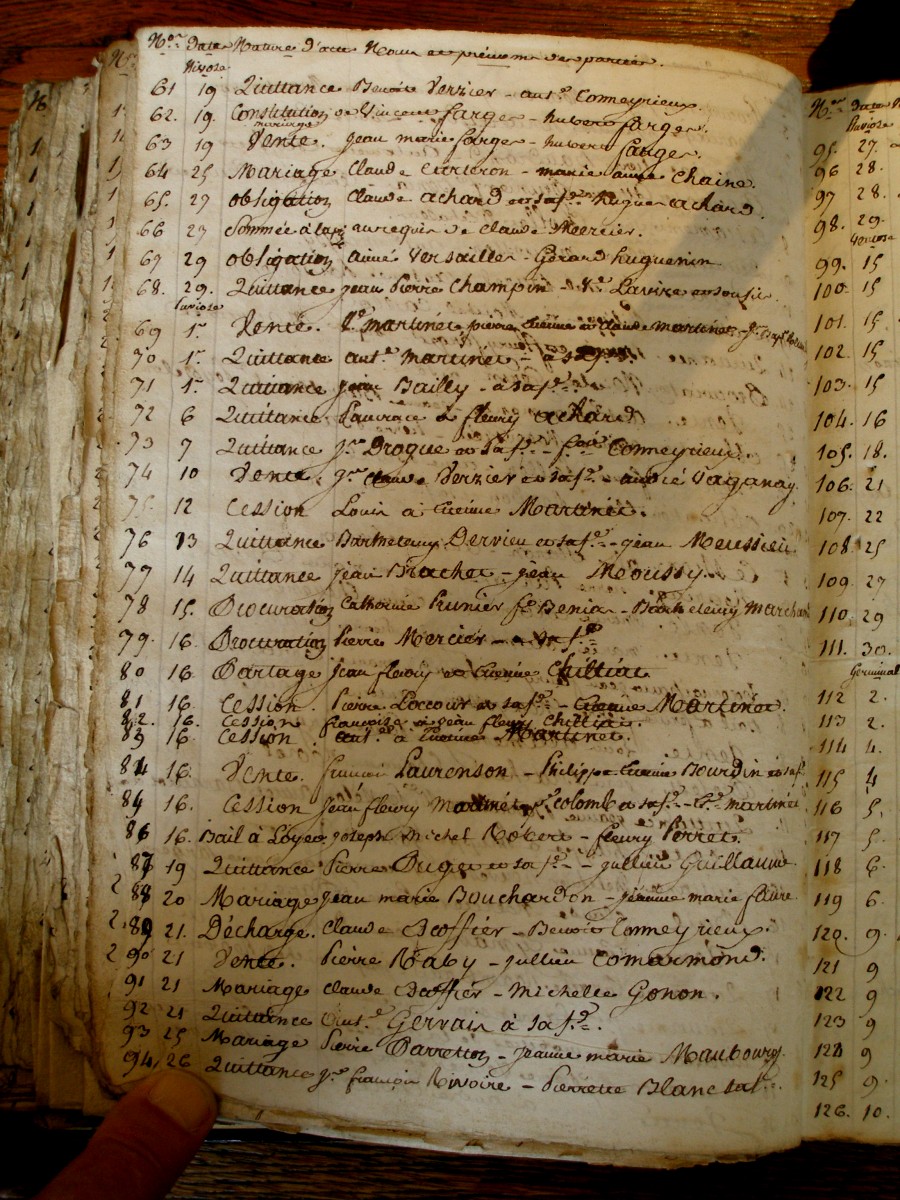 Nos Date Nature d'acte Noms et prénoms des parties.
Nivose
61 19 Quittance Benoit Verzier - ant.e Conneyrieux.
62. 19. Constitution de Vincent farges - hubert farges.
mariage
63 19 Vente. Jean marie farges - hubert farges
64 25 Mariage Claude - marie aimée Chaine.
65. 27 obligation Claude achard et sa fe. hugues achard.
66 27 Sommée à la requis de Claude Mercier.
67 29 obligation aimé Versailles - Gérard huguenin
68. 29. Quittance jean Pierre Champin - Ve. Lavire
pluviose
69 1er Vente. Ve martinet pierre, etienne et claude martinet
70 1er Quittance ant.e martinet - à sa fe.
71 1er Quittance jean Bailly - à sa fe.
72 6 Quittance Laurence à fleury achard
73 7 Quittance Jn Drogue et sa fe. - fois Conneyrieux.
74 10 Vente. Jn claude Verzier et sa fe - andré Vaganay
75. 12 Cession Louis à Etienne Martinet.
76 13 Quittance Barthelemy Dervieu et sa fe. - jean Meussieu
77 14 Quittance jean Brachet - jean Moussy.
78 15. Procuration Catherine Prunier fe Denis - Barthélemy Marchand
79. 16. Procuration Pierre Mercier - à sa fe
80 16. Partage jean fleury et Etienne Chilliat
81 16. Cession. Pierre Lacour et sa fe. - Etienne Martinet.
82. 16. Cession françoise à jean fleury Chilliat.
83 16. Cession. ant.e à Etienne Martinet.
84 16. Vente. françois Laurenson - Philippe Etienne Bourdin et sa fe
84 16. Cession jean fleury colomb et sa fe. - martinet
86 16. Bail à Loyer joseph Michel Robert - fleury Perret.
87 19 Quittance Pierre Duget et sa fe. - jullien Guillaume
88 20 Mariage jean marie Bouchardon - jeanne marie faure
89 21. Décharge. Claude Boffier - Benoit Conneyrieux.
90 21 Vente. Pierre Raby - jullien Comarmond.
91 21 Mariage Claude Boffier - Michelle Gonon.
92 21 Quittance Ant.e Gervais à sa fe.
93 25 Mariage Pierre Parretton - jeanne marie Maubourg
94. 26 Quittance Jn françois Rivoire - Pierrette Blanc sa fe.
Nos Date
Pluviose
95. 27.
96 28.
97 28.
98. 29.
Ventose
99. 15
100. 15
101. 15
102. 15
103. 15
104. 16
105. 18.
106. 21
107. 22
108. 25
109. 27
110. 29
111. 30.
Germinal
112 2.
113 2.
114 4.
115 4
116 5.
117 5.
118 6.
119 6.
120. 9.
121 9
122 9
123 9
124 9
125 9.
126. 10.